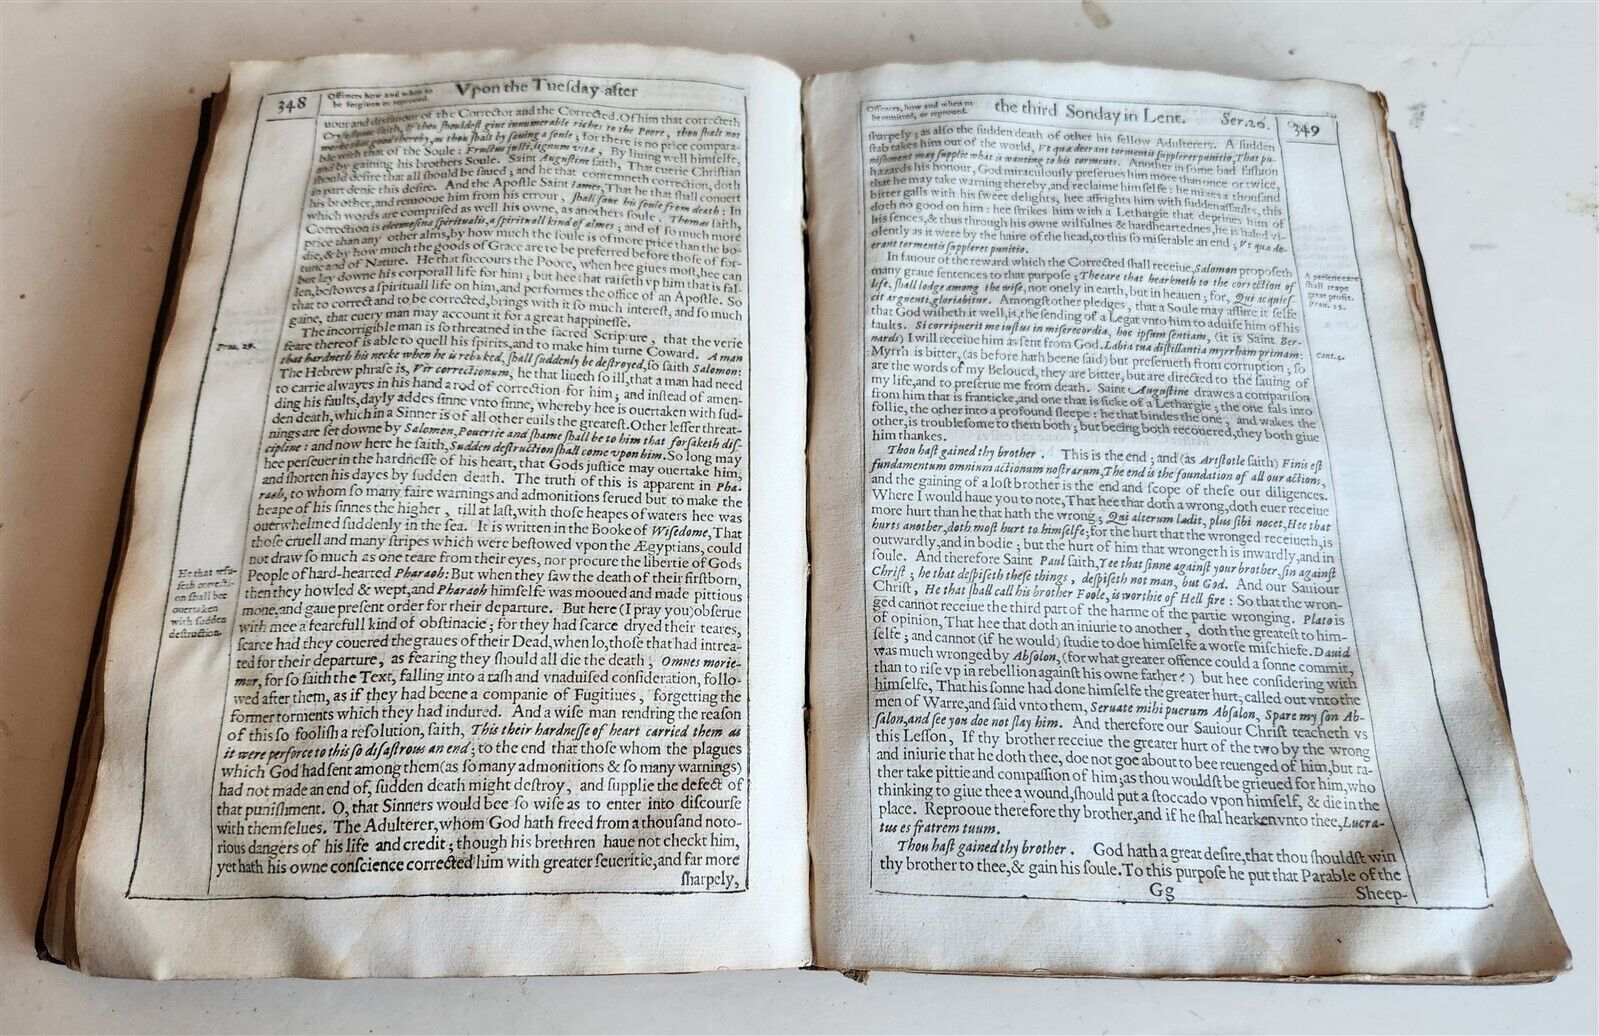 348
Offences how and when to
be forgiven or reproued.
Vpon the Tuesday after
uour and disfauour of the Corrector and the Corrected. Of him that correcteth
saith, If thou shouldest giue innumerable riches to the Poore, thou shalt not
thereby, as thou shalt by sauing a soule; for there is no price compara-
ble with that of the Soule: Fructus justi, lignum vitæ, By liuing well himselfe,
and by gaining his brothers Soule. Saint Augustine saith, That euerie Christian
should desire that all should be saued; and he that contemneth correction, doth
in part denie this desire. And the Apostle Saint Iames, That he that shall conuert
his brother, and remooue him from his errour, shall saue his soule from death: In
which words are comprised as well his owne, as anothers soule. Thomas saith,
Correction is eleemosina spiritualis, a spirituall kind of almes; and of so much more
price than any other alms, by how much the soule is of more price than the bo-
die, & by how much the goods of Grace are to be preferred before those of for-
tune and of Nature. He that succours the Poore, when hee giues most, hee can
but lay downe his corporall life for him; but hee that raiseth vp him that is fal-
len, bestowes a spirituall life on him, and performes the office of an Apostle. So
that to correct and to be corrected, brings with it so much interest, and so much
gaine, that euery man may account it for a great happinesse.
The incorrigible man is so threatned in the sacred Scripture, that the verie
feare thereof is able to quell his spirits, and to make him turne Coward. A man
Prou. 29.
that hardneth his necke when he is rebuked, shall suddenly be destroyed, so saith Salomon:
The Hebrew phrase is, Vir correctionum, he that liueth so ill, that a man had need
to carrie alwayes in his hand a rod of correction for him; and instead of amen-
ding his faults, dayly addes sinne vnto sinne, whereby hee is ouertaken with sud-
den death, which in a Sinner is of all other euils the greatest. Other lesser threat-
nings are set downe by Salomon, Pouertie and shame shall be to him that forsaketh dis-
cipline: and now here he saith, Sudden destruction shall come vpon him. So long may
hee perseuer in the hardnesse of his heart, that Gods justice may ouertake him,
and shorten his dayes by sudden death. The truth of this is apparent in Pha-
raoh, to whom so many faire warnings and admonitions serued but to make the
heape of his sinnes the higher, till at last, with those heapes of waters hee was
ouerwhelmed suddenly in the sea. It is written in the Booke of Wisedome, That
those cruell and many stripes which were bestowed vpon the Ægyptians, could
not draw so much as one teare from their eyes, nor procure the libertie of Gods
People of hard-hearted Pharaoh: But when they saw the death of their firstborn,
then they howled & wept, and Pharaoh himselfe was mooued and made pittious
mone, and gaue present order for their departure. But here (I pray you) obserue
with mee a fearefull kind of obstinacie; for they had scarce dryed their teares,
scarce had they couered the graues of their Dead, when lo, those that had intrea-
ted for their departure, as fearing they should all die the death; Omnes morie-
mur, for so saith the Text, falling into a rash and vnaduised consideration, follo-
wed after them, as if they had beene a companie of Fugitiues, forgetting the
former torments which they had indured. And a wise man rendring the reason
of this so foolish a resolution, saith, This their hardnesse of heart carried them as
it were perforce to this so disastrous an end; to the end that those whom the plagues
which God had sent among them (as so many admonitions & so many warnings)
had not made an end of, sudden death might destroy, and supplie the defect of
that punishment. O, that Sinners would bee so wise as to enter into discourse
with themselues. The Adulterer, whom God hath freed from a thousand noto-
rious dangers of his life and credit; though his brethren haue not checkt him,
yet hath his owne conscience corrected him with greater seueritie, and far more
sharpely,
He that refu-
seth correcti-
on shall bee
ouertaken
with sudden
destruction.
Offences, how and when to
be remitted, or reproued.
the third Sonday in Lent.
Ser. 20.
349
sharpely; as also the sudden death of other his fellow Adulterers. A sudden
stab takes him out of the world, Vt quæ deerant tormentis suppleret punitio, That pu-
nishment may supplie what is wanting to his torments. Another in some bad fashion
hazards his honour, God miraculously preserues him more than once or twice,
that he may take warning thereby, and reclaime himselfe: he mixes a thousand
bitter galls with his sweet delights, hee affrights him with sudden assaults, this
doth no good on him: hee strikes him with a Lethargie that depriues him of
his sences, & thus through his owne wilfulnes & hardheartednes, he is haled vi-
olently as it were by the haire of the head, to this so miserable an end; Vt quæ de-
erant tormentis suppleret punitio.
In fauour of the reward which the Corrected shall receiue, Salomon proposeth
many graue sentences to that purpose; The eare that hearkneth to the correction of
life, shall lodge among the wise, not onely in earth, but in heauen; for, Qui acquies-
cit arguenti, gloriabitur. Amongst other pledges, that a Soule may assure it selfe
that God wisheth it well, is, the sending of a Legat vnto him to aduise him of his
faults. Si corripuerit me iustus in misericordia, hoc ipsum sentiam, (it is Saint Ber-
nards) I will receiue him as sent from God. Labia tua distillantia myrrham primam:
Myrrh is bitter, (as before hath beene said) but preserueth from corruption; so
are the words of my Beloued, they are bitter, but are directed to the sauing of
my life, and to preserue me from death. Saint Augustine drawes a comparison
from him that is franticke, and one that is sicke of a Lethargie; the one fals into
follie, the other into a profound sleepe: he that bindes the one, and wakes the
other, is troublesome to them both; but beeing both recouered, they both giue
him thankes.
A patient eare
shall reape
great profit.
Prou. 15.
Cant. 4.
Thou hast gained thy brother. This is the end; and (as Aristotle saith) Finis est
fundamentum omnium actionum nostrarum, The end is the foundation of all our actions,
and the gaining of a lost brother is the end and scope of these our diligences.
Where I would haue you to note, That hee that doth a wrong, doth euer receiue
more hurt than he that hath the wrong; Qui alterum lædit, plus sibi nocet, Hee that
hurts another, doth most hurt to himselfe; for the hurt that the wronged receiueth, is
outwardly, and in bodie; but the hurt of him that wrongeth is inwardly, and in
soule. And therefore Saint Paul saith, Yee that sinne against your brother, sin against
Christ; he that despiseth these things, despiseth not man, but God. And our Sauiour
Christ, He that shall call his brother Foole, is worthie of Hell fire: So that the wron-
ged cannot receiue the third part of the harme of the partie wronging. Plato is
of opinion, That hee that doth an iniurie to another, doth the greatest to him-
selfe; and cannot (if he would) studie to doe himselfe a worse mischiefe. Dauid
was much wronged by Absolon, (for what greater offence could a sonne commit,
than to rise vp in rebellion against his owne father?) but hee considering with
himselfe, That his sonne had done himselfe the greater hurt, called out vnto the
men of Warre, and said vnto them, Seruate mihi puerum Absalon, Spare my son Ab-
salon, and see you doe not slay him. And therefore our Sauiour Christ teacheth vs
this Lesson, If thy brother receiue the greater hurt of the two by the wrong
and iniurie that he doth thee, doe not goe about to bee reuenged of him, but ra-
ther take pittie and compassion of him; as thou wouldst be grieued for him, who
thinking to giue thee a wound, should put a stoccado vpon himself, & die in the
place. Reprooue therefore thy brother, and if he shal hearken vnto thee, Lucra-
tus es fratrem tuum.
Thou hast gained thy brother. God hath a great desire, that thou shouldst win
thy brother to thee, & gain his soule. To this purpose he put that Parable of the
Gg
Sheep-